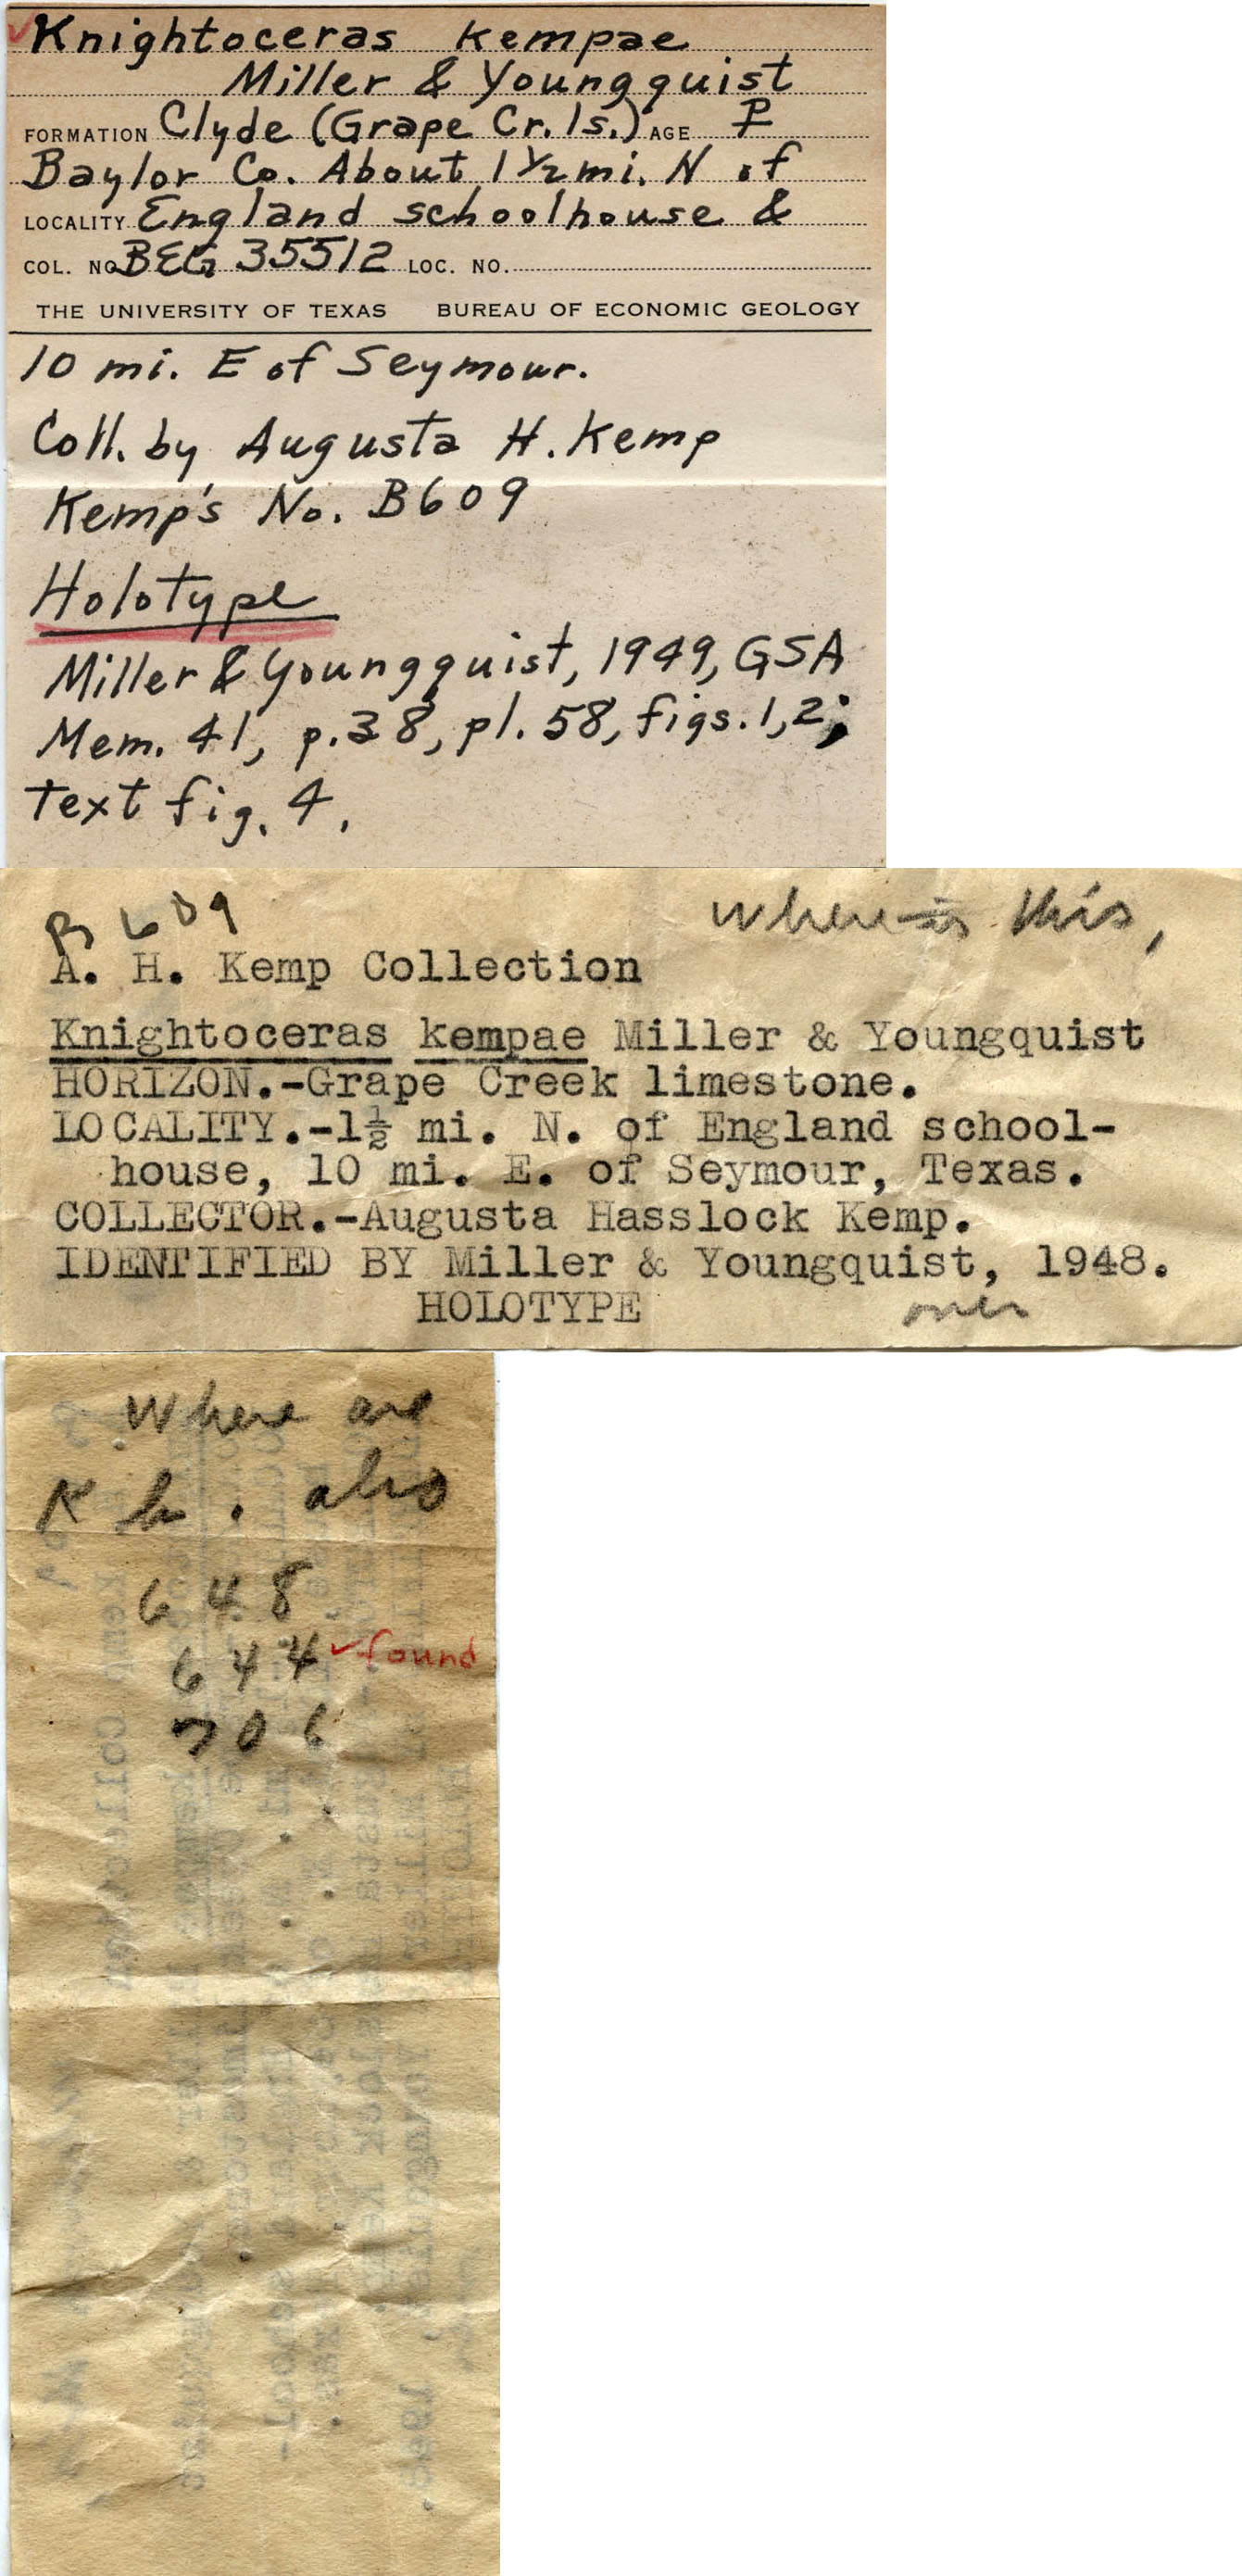 Knightoceras kempae
Miller & Youngquist
FORMATION Clyde (Grape Cr. ls.) AGE P
Baylor Co. About 1 1/2 mi. N of
LOCALITY England schoolhouse &
COL. NO. BEG 35512 LOC. NO.
THE UNIVERSITY OF TEXAS BUREAU OF ECONOMIC GEOLOGY
10 mi. E of Seymour.
Coll. by Augusta H. Kemp
Kemp's No. B609
Holotype
Miller & Youngquist, 1949, GSA
Mem. 41, p. 38, pl. 58, figs. 1, 2;
Text fig. 4.
B 609
where is this,
A. H. Kemp Collection
Knightoceras kempae Miller & Youngquist
HORIZON.-Grape Creek limestone.
LOCALITY.-1½ mi. N. of England school-
house, 10 mi. E. of Seymour, Texas.
COLLECTOR.-Augusta Hasslock Kemp.
IDENTIFIED BY Miller & Youngquist, 1948.
HOLOTYPE
over
Where are
K also
648
644 ✓ found
706